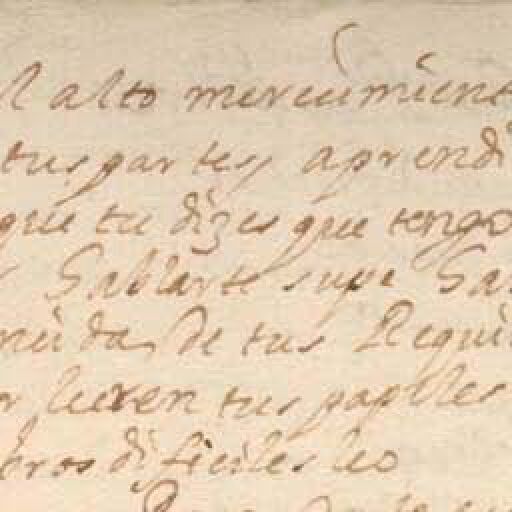 l alto merecimient
tus partes aprendi
que tu dizes que tengo
hablarte supe ha
muda de tus Requi
lucen tus papeles
bros dificiles leo